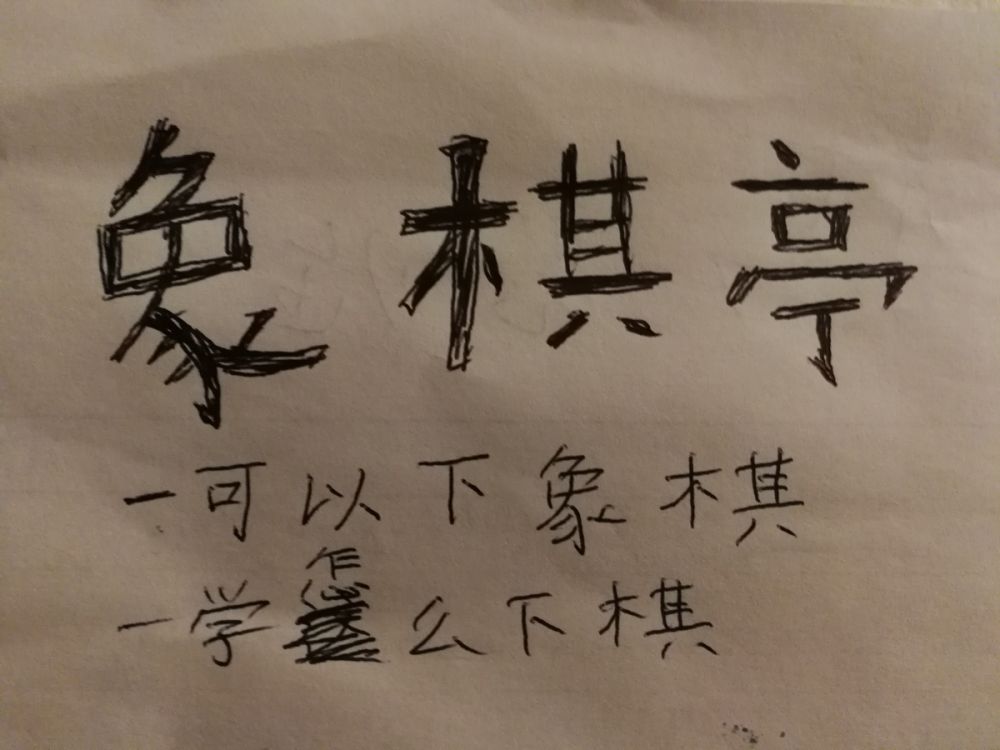 象棋亭
-可以下象棋
-学怎么下棋